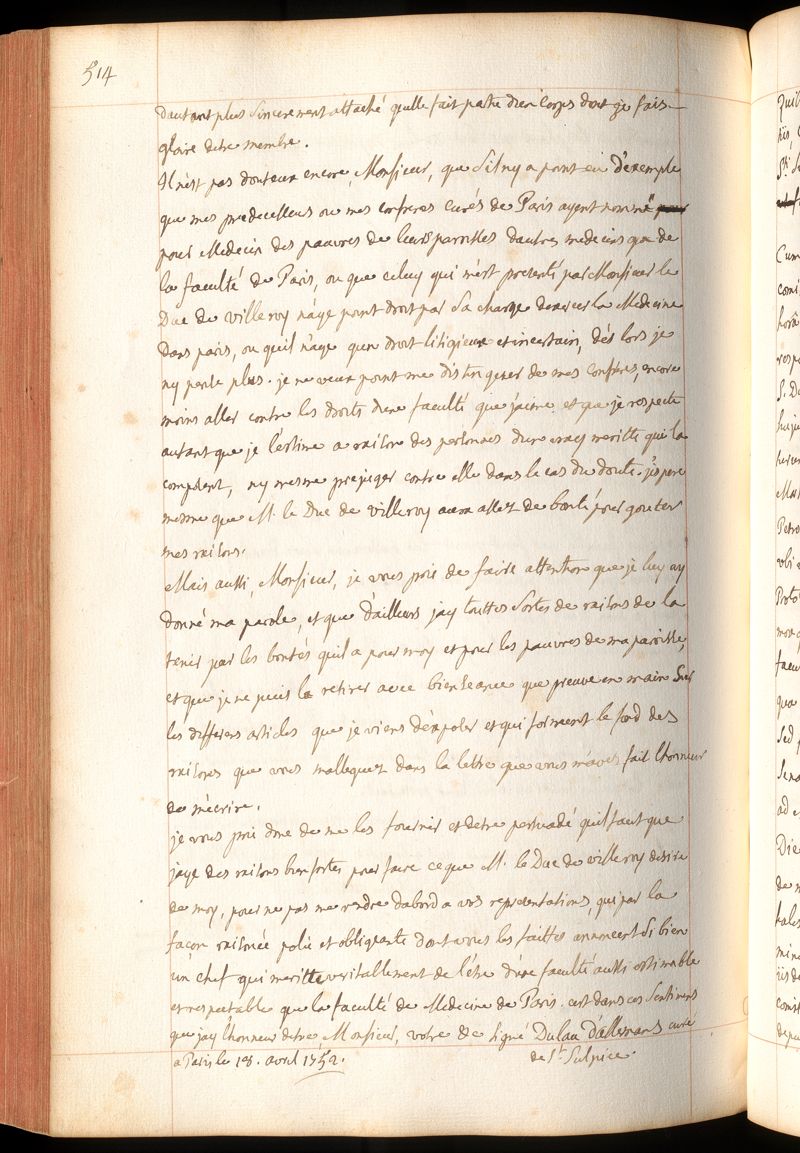 514
dautant plus sincerement attaché qu'elle fait partie d'un corps dont je fais
gloire detre membre.
Il n'est pas douteux encore, Monsieur, que s'il ny a point eu d'exemple
que mes predecesseurs ou mes confreres curés de Paris ayent nommé
pour Medecin des pauvres de leurs parroisses dautres medecins que de
la faculté de Paris, ou que celuy qui m'est presenté par Monsieur le
Duc de villeroy n'aye point droit par sa charge dexercer la Medecine
dans paris, ou quil n'aye qu'un droit litigieux et incertain, dés lors je
ny pense plus. je ne veux point me distinguer de mes confreres, encore
moins aller contre les droits d'une faculté que j'aime et que je respecte
autant que je l'estime a raison des personnes d'un vray meritte qui la
composent, ny mesme prejuger contre elle dans le cas du doute. j'espere
mesme que M. le Duc de villeroy aura assez de bonté pour gouter
mes raisons.
Mais aussi, Monsieur, je vous prie de faire attention que je luy ay
donné ma parole, et que d'ailleurs jay touttes sortes de raisons de la
tenir par les bontés quil a pour moy et pour les pauvres de ma paroisse,
et que je ne puis la retirer avec bienseance que preuve en main sur
les differens articles que je viens d'exposer et qui forment le fond des
raisons que vous m'alleguez dans la lettre que vous m'avés fait l'honneur
de m'écrire.
je vous prie donc de me les fournir et detre persuadé quil faut que
jaye des raisons bien fortes pour faire ce que M. le Duc de villeroy desire
de moy, pour ne pas me rendre dabord a vos representations, qui par la
façon raisonée polie et obligeante dont vous les faittes annoncent si bien
un chef qui meritte veritablement de l'être d'une faculté aussi estimable
et respectable que la faculté de Medecine de Paris. c'est dans ces sentimens
que jay l'honneur detre Monsieur, votre &c signé Dulau d'allemans curé
a Paris le 18. avril 1752. de St. Sulpice.